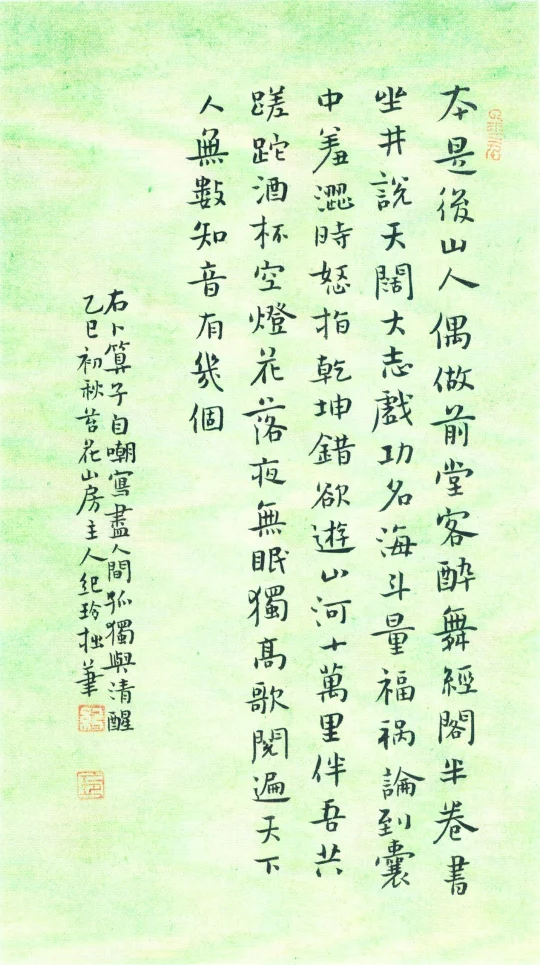 本是後山人偶做前堂客醉舞經閣半卷書
坐井說天闊大志戲功名海斗量福祸論到囊
中羞澀時怒指乾坤錯欲遊山河十萬里伴吾共
蹉跎酒杯空燈花落夜無眠獨高歌閱遍天下
人無數知音有幾個
右卜算子自嘲寫盡人間孤獨與清醒
乙巳初秋苔花山房主人紀玲拙筆